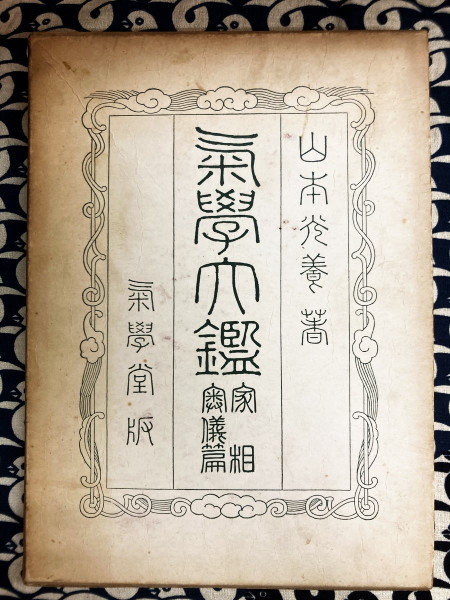 山本光養著
氣學大鑑
家相
奧儀篇
氣學堂版